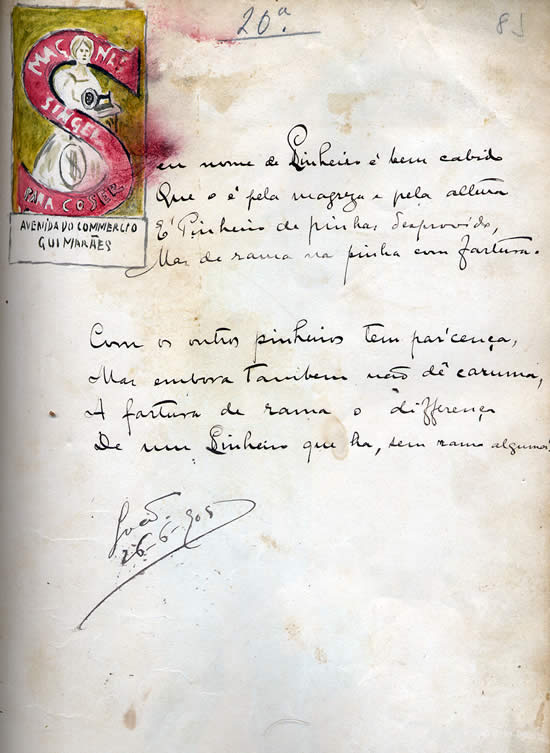 20ª
85
MACHNAS
SINGER
PARA COSER
AVENIDA DO COMMERCIO
GUIMARÃES
Seu nome de Pinheiro é bem cabido
Que o é pela magreza e pela altura
E' Pinheiro de pinhas desprovido,
Mas de rama na pinha com fartura.
Com os outros pinheiros tem par'cença,
Mas embora tambem não dê caruma,
A fartura de rama o differença
De um Pinheiro que ha, sem rama alguma!
26-6-905